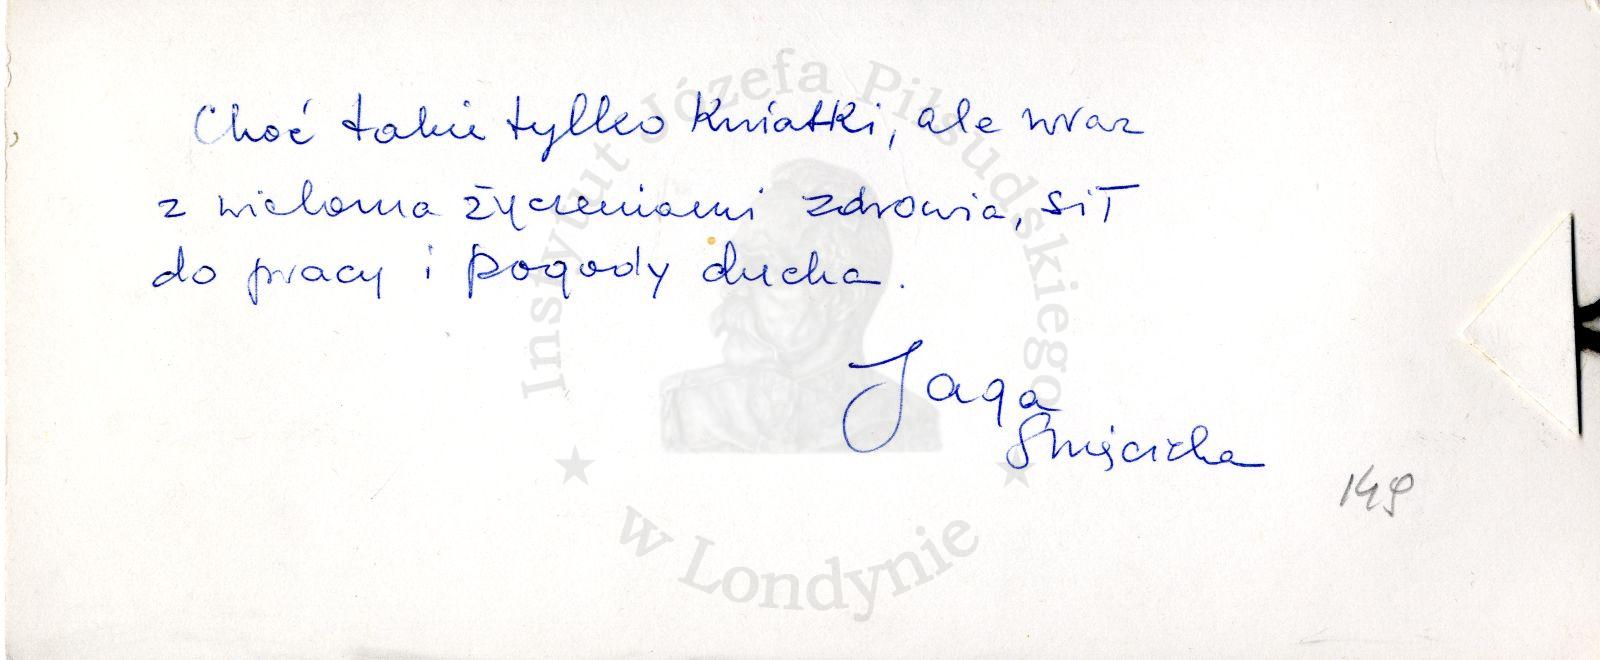 Choć takie tylko kwiatki, ale wraz
z wieloma życzeniami zdrowia, sił
do pracy i pogody ducha.
Jaga
Święcicka
149
Instytut Józefa Piłsudskiego
w Londynie